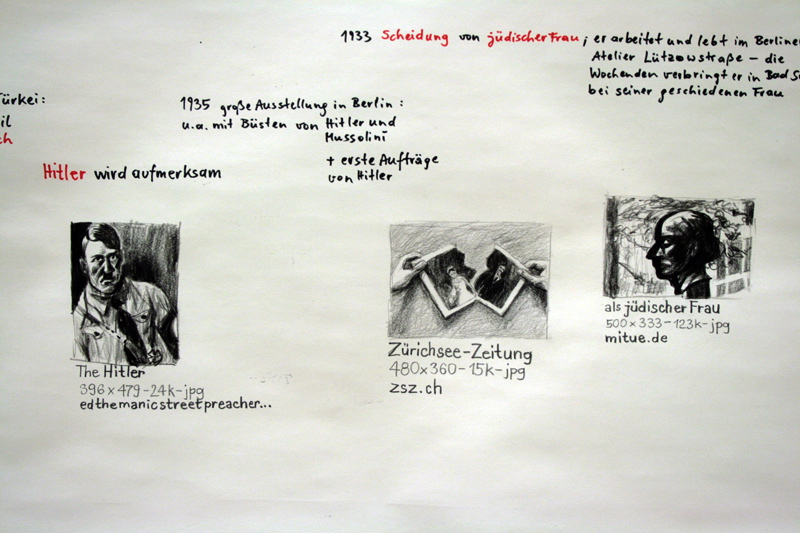 1933 Scheidung von jüdischer Frau; er arbeitet und lebt im
Atelier Lützowstraße – die
Wochenenden verbringt er in Bad
bei seiner geschiedenen Frau
Türkei:
1935 große Ausstellung in Berlin:
u.a. mit Büsten von Hitler und
Mussolini
+ erste Aufträge
von Hitler
Hitler wird aufmerksam
The Hitler
396 x 479 - 24k - jpg
edthemanicstreetpreacher...
Zürichsee-Zeitung
480 x 360 - 15k - jpg
zsz.ch
als jüdischer Frau
500 x 333 - 123k - jpg
mitue.de